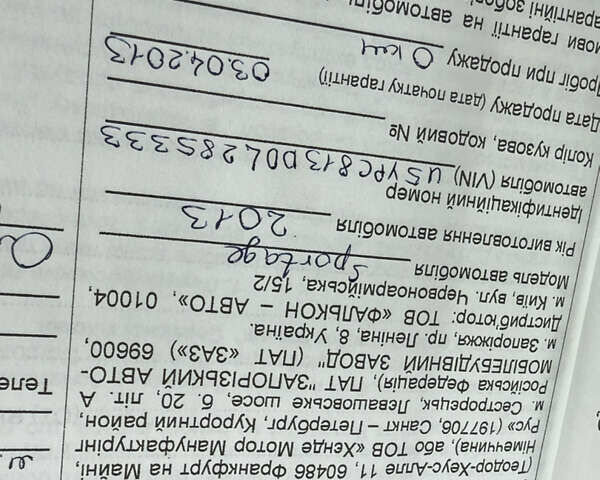 (Теодор-Хеус-Алле 11, 60486 Франкфурт на Майні,
Німеччина), або ТОВ «Хенде Мотор Мануфактурінг
Рус» (197706, Санкт – Петербург, Курортний район,
м. Сестрорецьк, Левашовське шосе, б. 20, літ. А
Російська Федерація), ПАТ "ЗАПОРІЗЬКИЙ АВТО-
МОБІЛЕБУДІВНИЙ ЗАВОД" (ПАТ «ЗАЗ») 69600,
м. Запоріжжя, пр. Леніна, 8, Україна.
Дистриб'ютор: ТОВ «ФАЛЬКОН – АВТО», 01004,
м. Київ, вул. Червоноармійська, 15/2
Модель автомобіля Sportage
Рік виготовлення автомобіля 2013
Ідентифікаційний номер
автомобіля (VIN) U5YPC813DDL285333
Колір кузова, кодовий №
Дата продажу (дата початку гарантії)
03.04.2013
Пробіг при продажу 0 км
мови гарантії на автомобілі
Теле